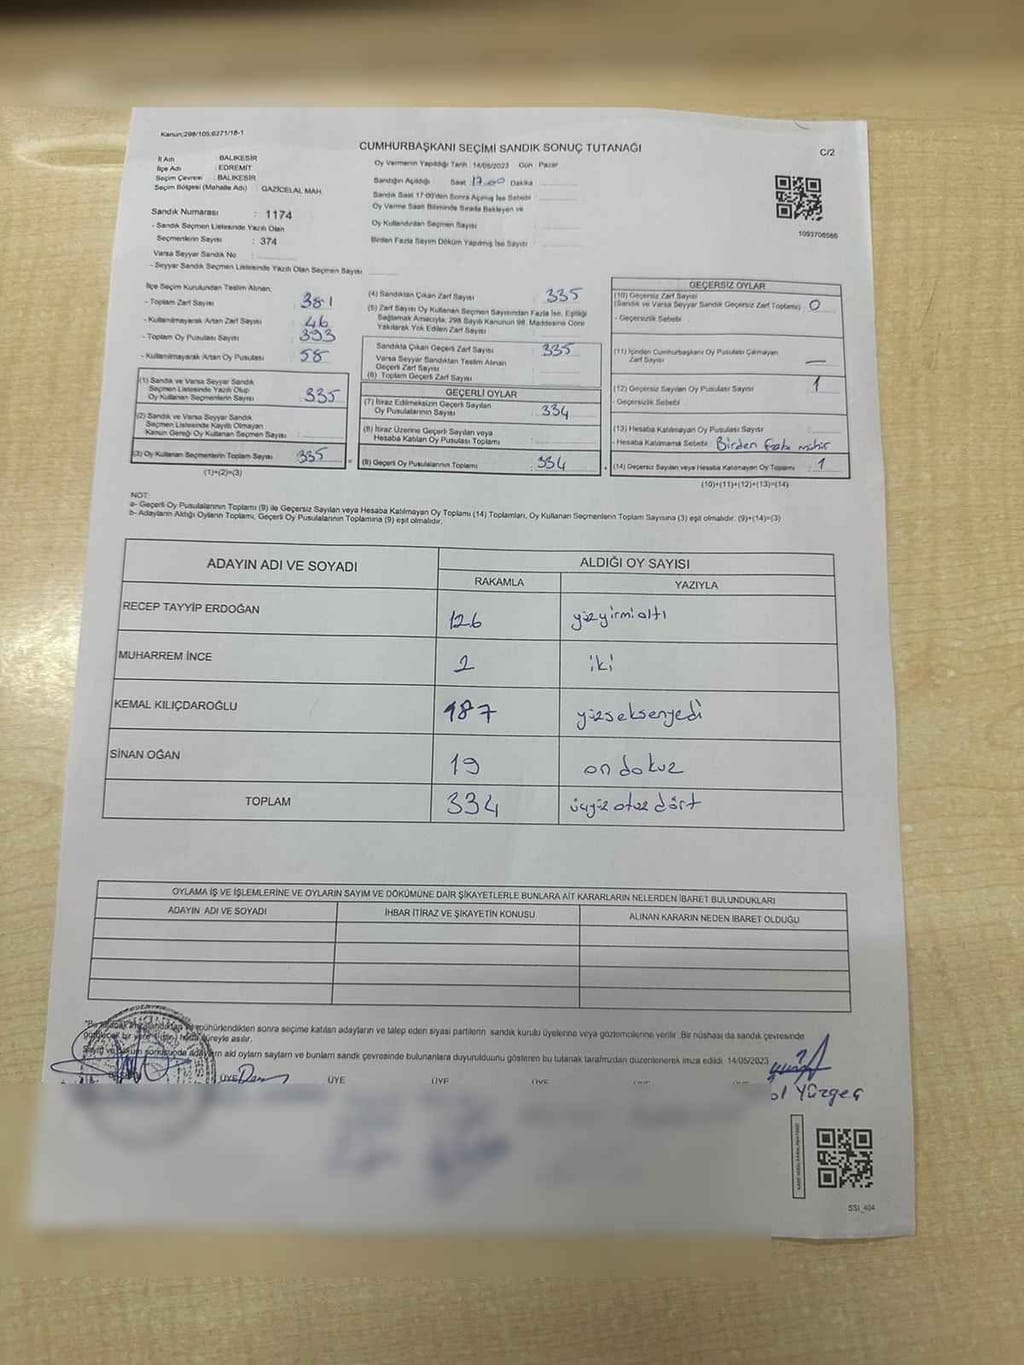 Kanun;298/105;6271/18-1
CUMHURBAŞKANI SEÇİMİ SANDIK SONUÇ TUTANAĞI
C/2
İl Adı : BALIKESİR
İlçe Adı : EDREMİT
Seçim Çevresi : BALIKESİR
Seçim Bölgesi (Mahalle Adı) : GAZİCELAL MAH.
Sandık Numarası : 1174
- Sandık Seçmen Listesinde Yazılı Olan
Seçmenlerin Sayısı : 374
Varsa Seyyar Sandık No
- Seyyar Sandık Seçmen Listesinde Yazılı Olan Seçmen Sayısı
Oy Vermenin Yapıldığı Tarih : 14/05/2023 Gün : Pazar
Sandığın Açıldığı Saat 17.00 Dakika
Sandık Saat 17:00'den Sonra Açılmış İse Sebebi
Oy Verme Saati Bitiminde Sırada Bekleyen ve
Oy Kullandırılan Seçmen Sayısı
Birden Fazla Sayım Döküm Yapılmış İse Sayısı
1093708586
İlçe Seçim Kurulundan Teslim Alınan;
- Toplam Zarf Sayısı 381
- Kullanılmayarak Artan Zarf Sayısı 46
- Toplam Oy Pusulası Sayısı 393
- Kullanılmayarak Artan Oy Pusulası 58
(1) Sandık ve Varsa Seyyar Sandık
Seçmen Listesinde Yazılı Olup
Oy Kullanan Seçmenlerin Sayısı 335
(2) Sandık ve Varsa Seyyar Sandık
Seçmen Listesinde Kayıtlı Olmayan
Kanun Gereği Oy Kullanan Seçmen Sayısı
(3) Oy Kullanan Seçmenlerin Toplam Sayısı 335
(1)+(2)=(3)
(4) Sandıktan Çıkan Zarf Sayısı 335
(5) Zarf Sayısı Oy Kullanan Seçmen Sayısından Fazla İse, Eşitliği
Sağlamak Amacıyla; 298 Sayılı Kanunun 98. Maddesine Göre
Yakılarak Yok Edilen Zarf Sayısı
Sandıkta Çıkan Geçerli Zarf Sayısı 335
Varsa Seyyar Sandıktan Teslim Alınan
Geçerli Zarf Sayısı
(6) Toplam Geçerli Zarf Sayısı
GEÇERLİ OYLAR
(7) İtiraz Edilmeksizin Geçerli Sayılan
Oy Pusulalarının Sayısı 334
(8) İtiraz Üzerine Geçerli Sayılan veya
Hesaba Katılan Oy Pusulası Toplamı
(9) Geçerli Oy Pusulalarının Toplamı 334
GEÇERSİZ OYLAR
(10) Geçersiz Zarf Sayısı
(Sandık ve Varsa Seyyar Sandık Geçersiz Zarf Toplamı) 0
- Geçersizlik Sebebi
(11) İçinden Cumhurbaşkanı Oy Pusulası Çıkmayan
Zarf Sayısı —
(12) Geçersiz Sayılan Oy Pusulası Sayısı 1
- Geçersizlik Sebebi
(13) Hesaba Katılmayan Oy Pusulası Sayısı
- Hesaba Katılmama Sebebi : Birden fazla mühür
(14) Geçersiz Sayılan veya Hesaba Katılmayan Oy Toplamı 1
(10)+(11)+(12)+(13)=(14)
NOT:
a- Geçerli Oy Pusulalarının Toplamı (9) ile Geçersiz Sayılan veya Hesaba Katılmayan Oy Toplamı (14) Toplamları, Oy Kullanan Seçmenlerin Toplam Sayısına (3) eşit olmalıdır. (9)+(14)=(3)
b- Adayların Aldığı Oyların Toplamı, Geçerli Oy Pusulalarının Toplamına (9) eşit olmalıdır.
ADAYIN ADI VE SOYADI ALDIĞI OY SAYISI
RAKAMLA YAZIYLA
RECEP TAYYİP ERDOĞAN 126 yüzyirmialtı
MUHARREM İNCE 2 iki
KEMAL KILIÇDAROĞLU 187 yüzseksenyedi
SİNAN OĞAN 19 on dokuz
TOPLAM 334 üçyüz otuz dört
OYLAMA İŞ VE İŞLEMLERİNE VE OYLARIN SAYIM VE DÖKÜMÜNE DAİR ŞİKAYETLERLE BUNLARA AİT KARARLARIN NELERDEN İBARET BULUNDUKLARI
ADAYIN ADI VE SOYADI İHBAR İTİRAZ VE ŞİKAYETİN KONUSU ALINAN KARARIN NEDEN İBARET OLDUĞU
mühürlendikten sonra seçime katılan adayların ve talep eden siyasi partilerin sandık kurulu üyelerine veya gözlemcilerine verilir. Bir nüshası da sandık çevresinde
süreyle asılır.
adayların aid oyların sayıları ve bunların sandık çevresinde bulunanlara duyurulduunu gösteren bu tutanak tarafımızdan düzenlenerek imza edildi. 14/05/2023
ÜYE ÜYE ÜYE ÜYE
Yüzgeç
SSI_404